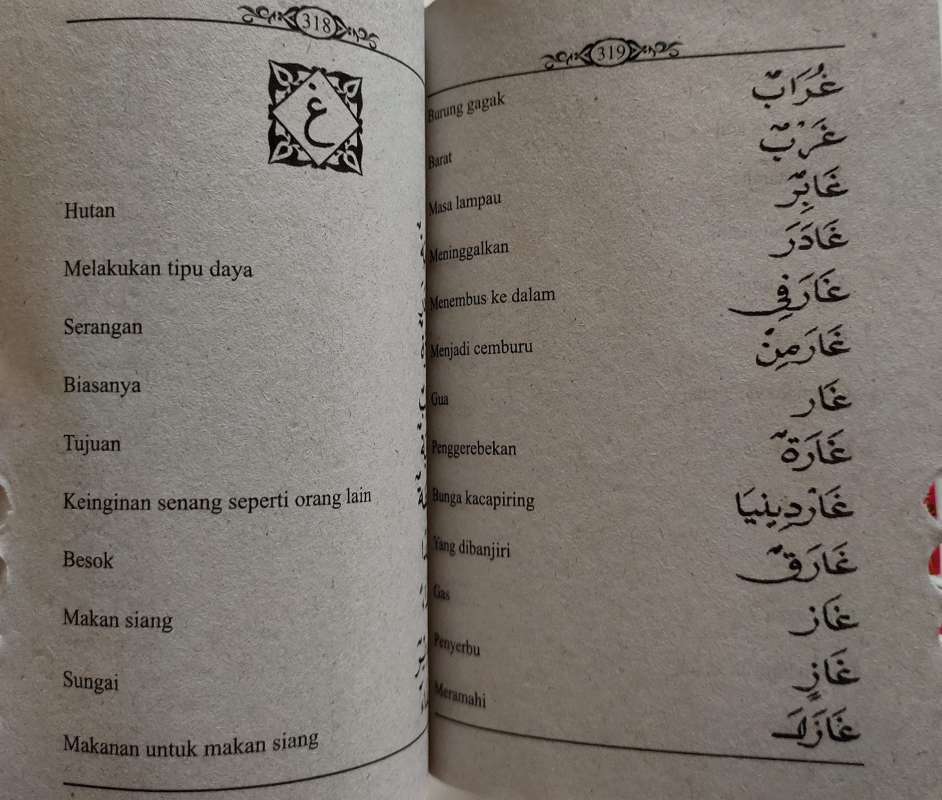 318
غ
Hutan
Melakukan tipu daya
Serangan
Biasanya
Tujuan
Keinginan senang seperti orang lain
Besok
Makan siang
Sungai
Makanan untuk makan siang
319
Burung gagak غُرَابٌ
Barat غَرْبٌ
Masa lampau غَابِرٌ
Meninggalkan غَادَرَ
Menembus ke dalam غَارَفِي
Menjadi cemburu غَارَمِنْ
Gua غَار
Penggerebekan غَارَةٌ
Bunga kacapiring غَارْدِينِيَا
Yang dibanjiri غَارَقٌ
Gas غَاز
Penyerbu غَازٍ
Meramahi غَازَلَ